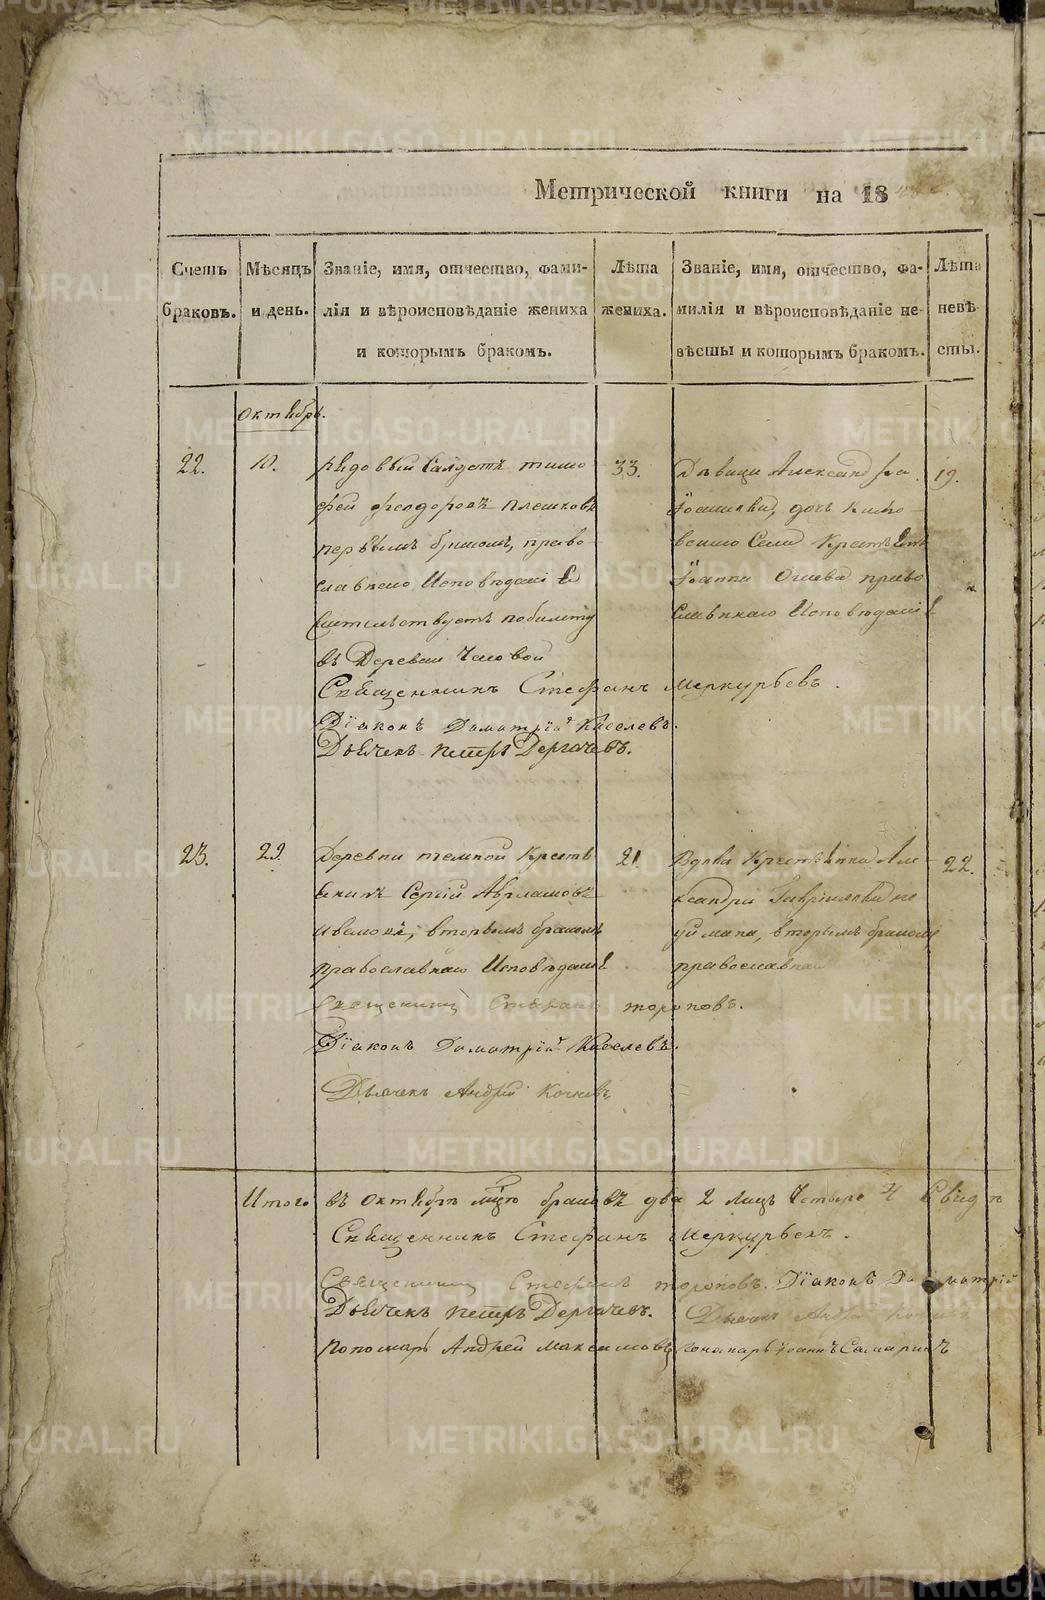 Метрической книги на 18
Счетъ браковъ.
Мѣсяцъ и день.
Званіе, имя, отчество, фами-
лія и вѣроисповѣданіе жениха
и которымъ бракомъ.
Лѣта жениха.
Званіе, имя, отчество, фа-
милія и вѣроисповѣданіе не-
вѣсты и которымъ бракомъ.
Лѣта невѣ-
сты.
Октябрь.
22.
10.
рядовый Салдатъ тимо
фей феодоровъ плешковъ
первымъ бракомъ, право
славнаго Исповѣданія
побилету
въ Деревни Часовой
Священникъ Стефанъ Меркурьевъ.
Діаконъ Доматрій Киселевъ.
Дьячекъ петръ Дергачевъ.
33.
Дѣвица Александра
Іоаннова, дочь
Села Крестьян
Іоанна право
славнаго Исповѣданія
19.
23.
29.
Деревни темной Кресть
янинъ Сергій Аврамовъ
вторымъ бракомъ
православнаго Исповѣданія
Священникъ Стефанъ тороповъ.
Діаконъ Доматрій Киселевъ.
Дьячекъ Андрей Кочневъ
21
Вдова Крестьянка Але
ксандра Гавриловна
вторымъ бракомъ
православнаго
22.
Итого въ октябрѣ браковъ два 2 лицъ Четыре 4
Священникъ Стефанъ Меркурьевъ.
Священникъ Стефанъ тороповъ. Діаконъ Доматрій
Дьячекъ петръ Дергачевъ. Дьячекъ Андрей Кочневъ
Пономарь Андрей Максимовъ Пономарь Іоаннъ Самаринъ
METRIKI.GASO-URAL.RU